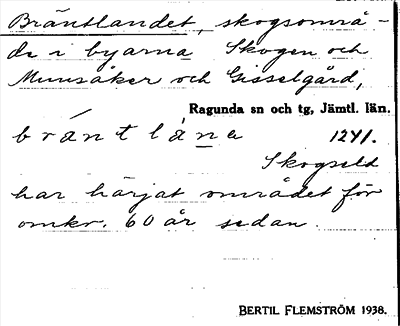 Bräntlandet, skogsområ-
de i byarna Skogen och
Munsåker och Gisselgård,
Ragunda sn och tg, Jämtl. län.
bräntlåna 1241.
Skogseld
har härjat området för
omkr. 60 år sedan.
BERTIL FLEMSTRÖM 1938.